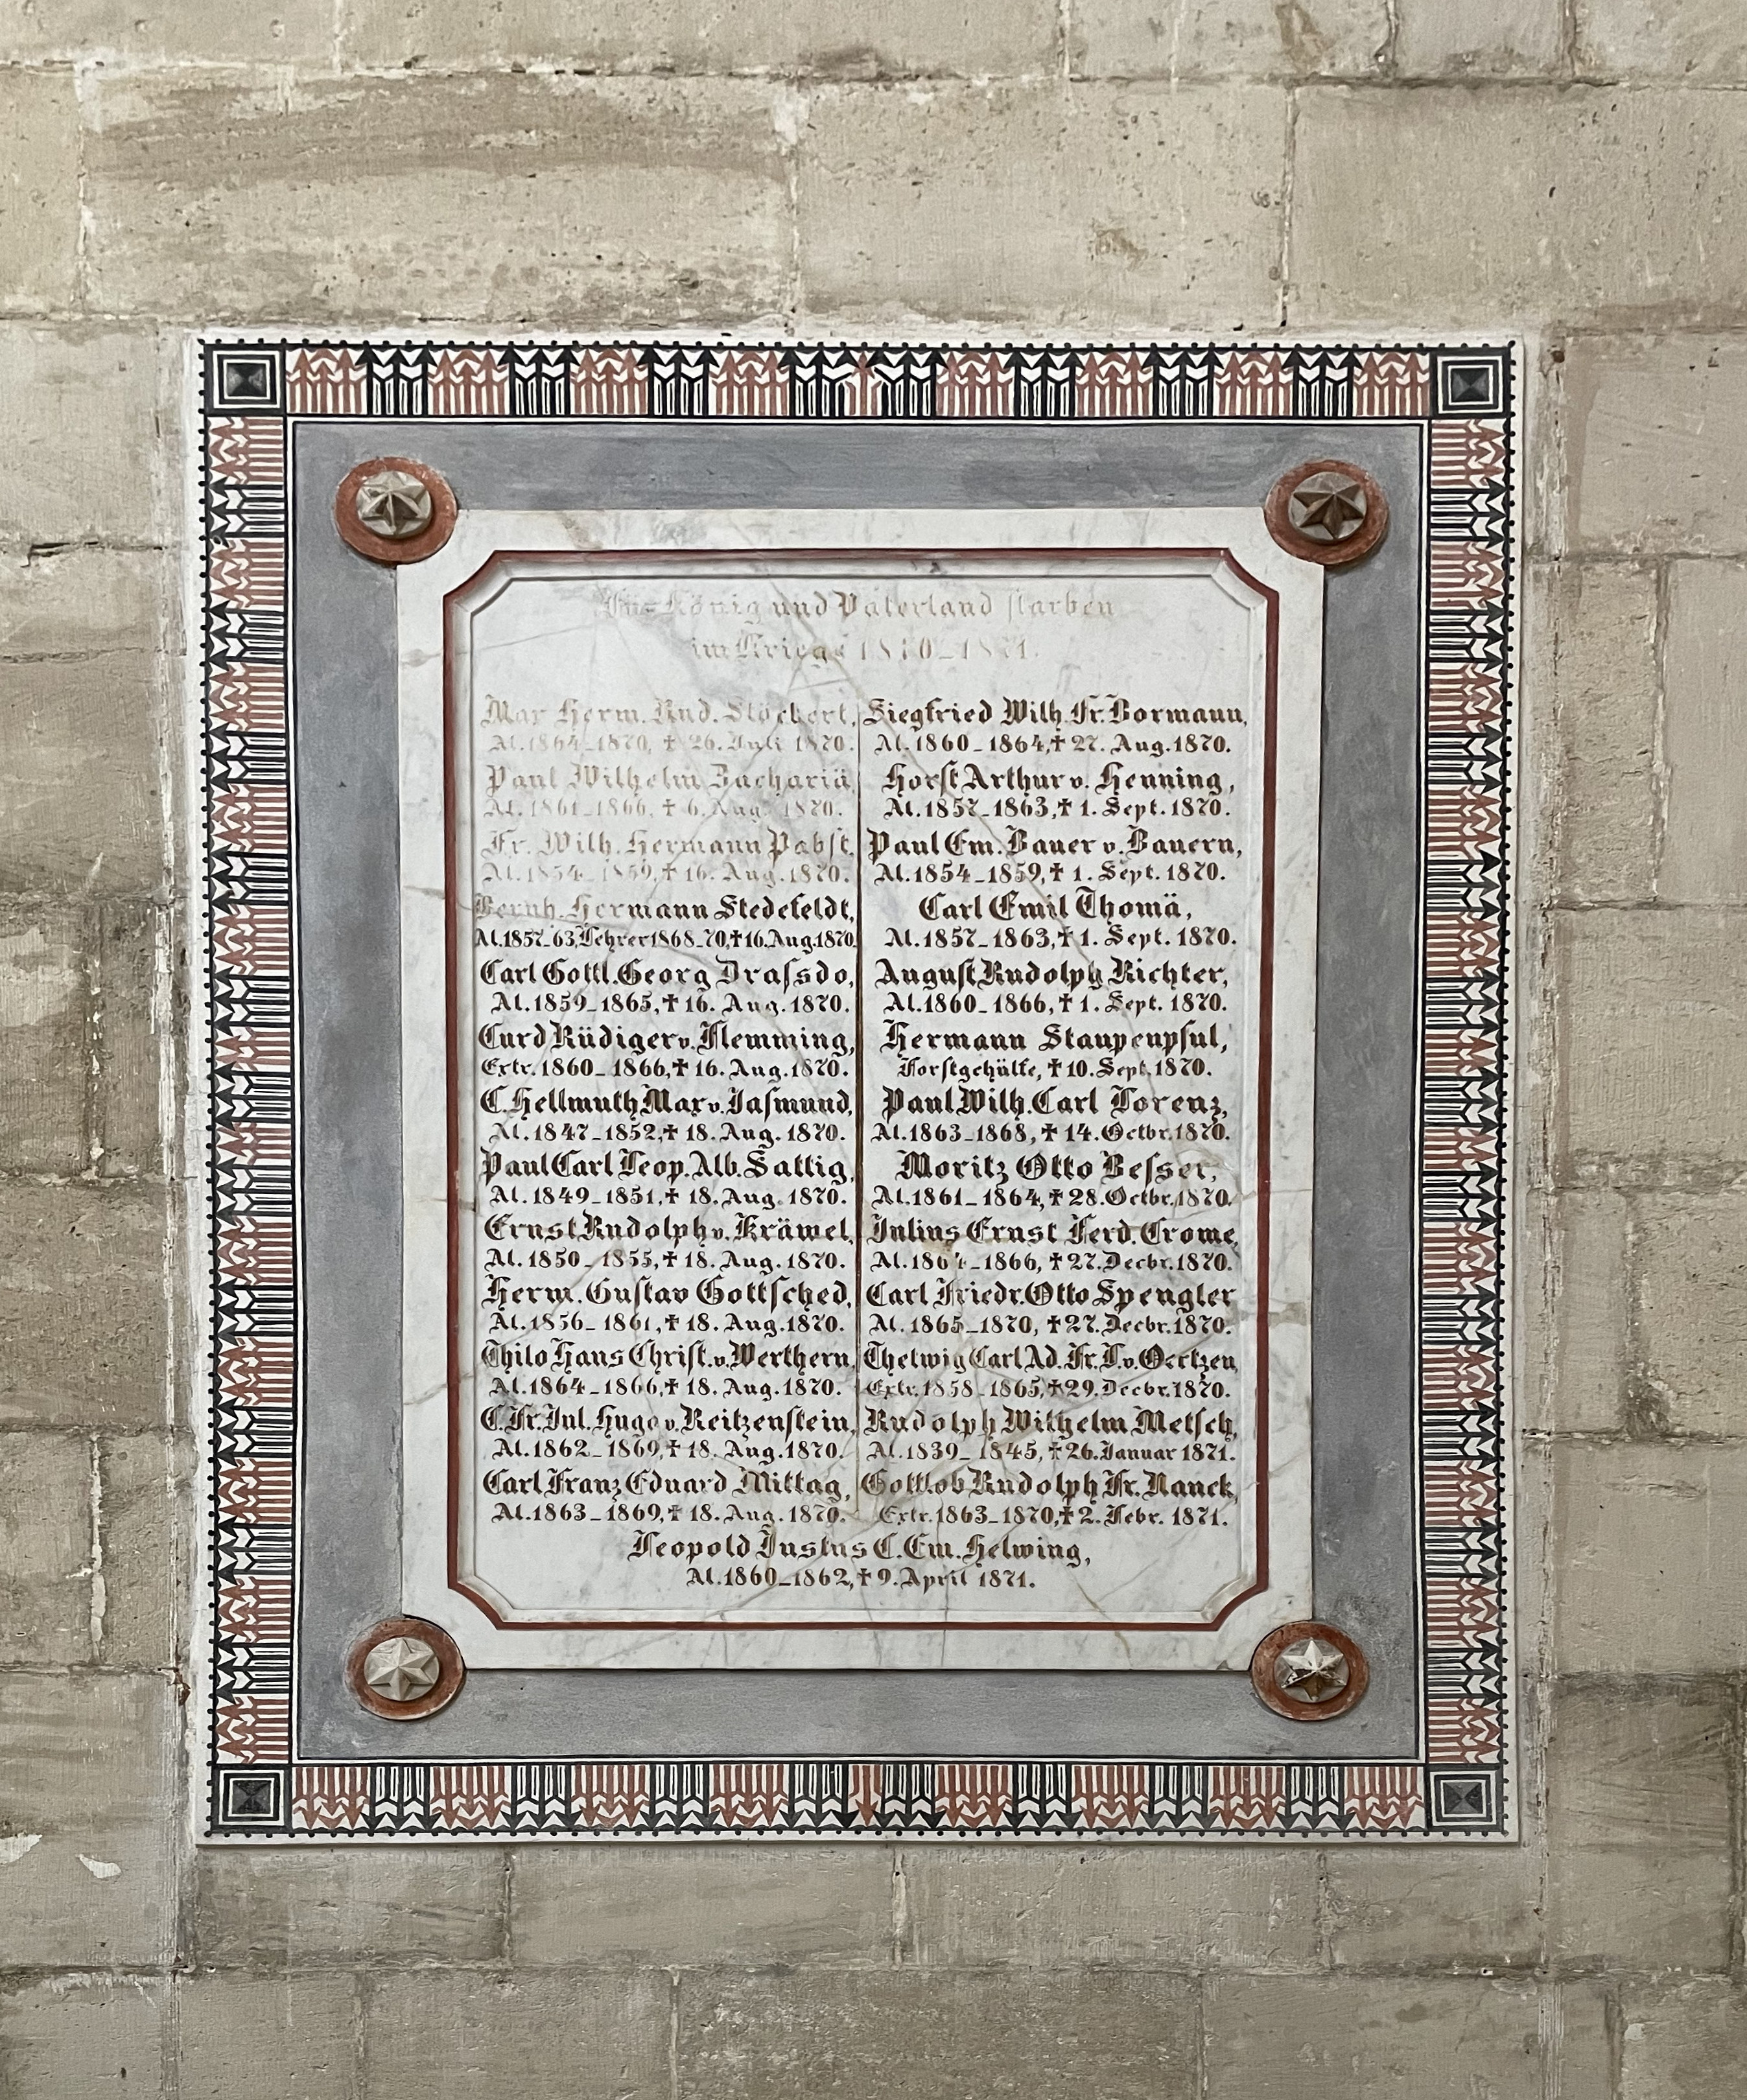 Für König und Vaterland starben
im Kriege 1870_1871.
Max Herm. Rud. Stöckert,
Al. 1864_1870, ✝ 26. Juli 1870.
Paul Wilhelm Zachariä,
Al. 1861_1866, ✝ 6. Aug. 1870.
Fr. Wilh. Hermann Pabst,
Al. 1854_1859, ✝ 16. Aug. 1870.
Bernh. Hermann Stedefeldt,
Al. 1857_63, Lehrer 1868_70, ✝ 16. Aug. 1870.
Carl Gottl. Georg Draſsdo,
Al. 1859_1865, ✝ 16. Aug. 1870.
Curd Rüdiger v. Flemming,
Extr. 1860_1866, ✝ 16. Aug. 1870.
C. Hellmuth Max v. Jaſmund,
Al. 1847_1852, ✝ 18. Aug. 1870.
Paul Carl Leop. Alb. Sattig,
Al. 1849_1851, ✝ 18. Aug. 1870.
Ernst Rudolph v. Kräwel,
Al. 1850_1855, ✝ 18. Aug. 1870.
Herm. Guſtav Gottſched,
Al. 1856_1861, ✝ 18. Aug. 1870.
Thilo Hans Chriſt. v. Werthern,
Al. 1864_1866, ✝ 18. Aug. 1870.
C. Fr. Jul. Hugo v. Reitzenſtein,
Al. 1862_1869, ✝ 18. Aug. 1870.
Carl Franz Eduard Mittag,
Al. 1863_1869, ✝ 18. Aug. 1870.
Siegfried Wilh. Fr. Bormann,
Al. 1860_1864, ✝ 27. Aug. 1870.
Horſt Arthur v. Henning,
Al. 1857_1863, ✝ 1. Sept. 1870.
Paul Em. Bauer v. Bauern,
Al. 1854_1859, ✝ 1. Sept. 1870.
Carl Emil Thomä,
Al. 1857_1863, ✝ 1. Sept. 1870.
Auguſt Rudolph Richter,
Al. 1860_1866, ✝ 1. Sept. 1870.
Hermann Staupenpful,
Forſtgehülfe, ✝ 10. Sept. 1870.
Paul Wilh. Carl Lorenz,
Al. 1863_1868, ✝ 14. Octbr. 1870.
Moritz Otto Beſser,
Al. 1861_1864, ✝ 28. Octbr. 1870.
Julius Ernst Ferd. Crome,
Al. 1866, ✝ 27. Decbr. 1870.
Carl Friedr. Otto Spengler
Al. 1865_1870, ✝ 27. Decbr. 1870.
Thelwig Carl Ad. Fr. L. v. Oertzen,
Extr. 1858_1865, ✝ 29. Decbr. 1870.
Rudolph Wilhelm Metſch,
Al. 1839_1845, ✝ 26. Januar 1871.
Gottlob Rudolph Fr. Nauck,
Extr. 1863_1870, ✝ 2. Febr. 1871.
Leopold Justus C. Em. Helwing,
Al. 1860_1862, ✝ 9. April 1871.